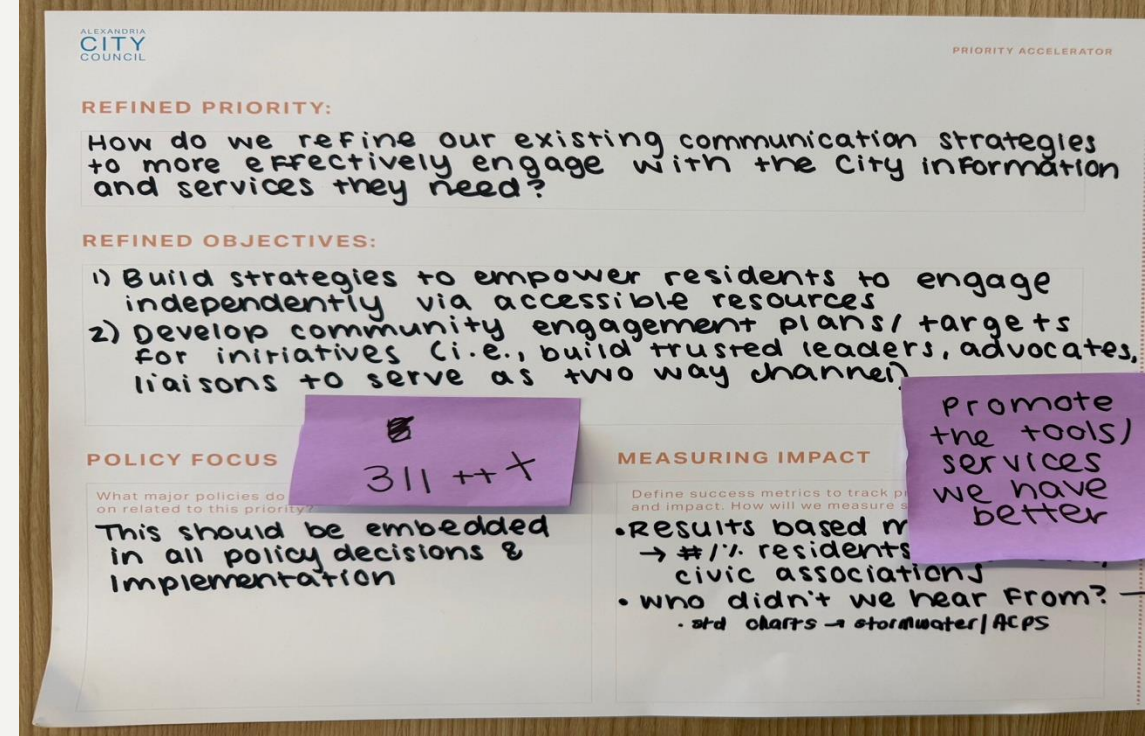 ALEXANDRIA
CITY
COUNCIL
PRIORITY ACCELERATOR
REFINED PRIORITY:
How do we refine our existing communication strategies
to more effectively engage with the City information
and services they need?
REFINED OBJECTIVES:
1) Build strategies to empower residents to engage
independently via accessible resources
2) Develop community engagement plans/ targets
for initiatives (i.e., build trusted leaders, advocates,
liaisons to serve as two way channel)
311 +++
Promote
the tools/
services
we have
better
POLICY FOCUS
What major policies do
on related to this priority?
This should be embedded
in all policy decisions &
Implementation
MEASURING IMPACT
Define success metrics to track
and impact. How will we measure
• Results based
→ #/% residents
civic associations
• Who didn't we hear from? –
charts → stormwater/ACPS